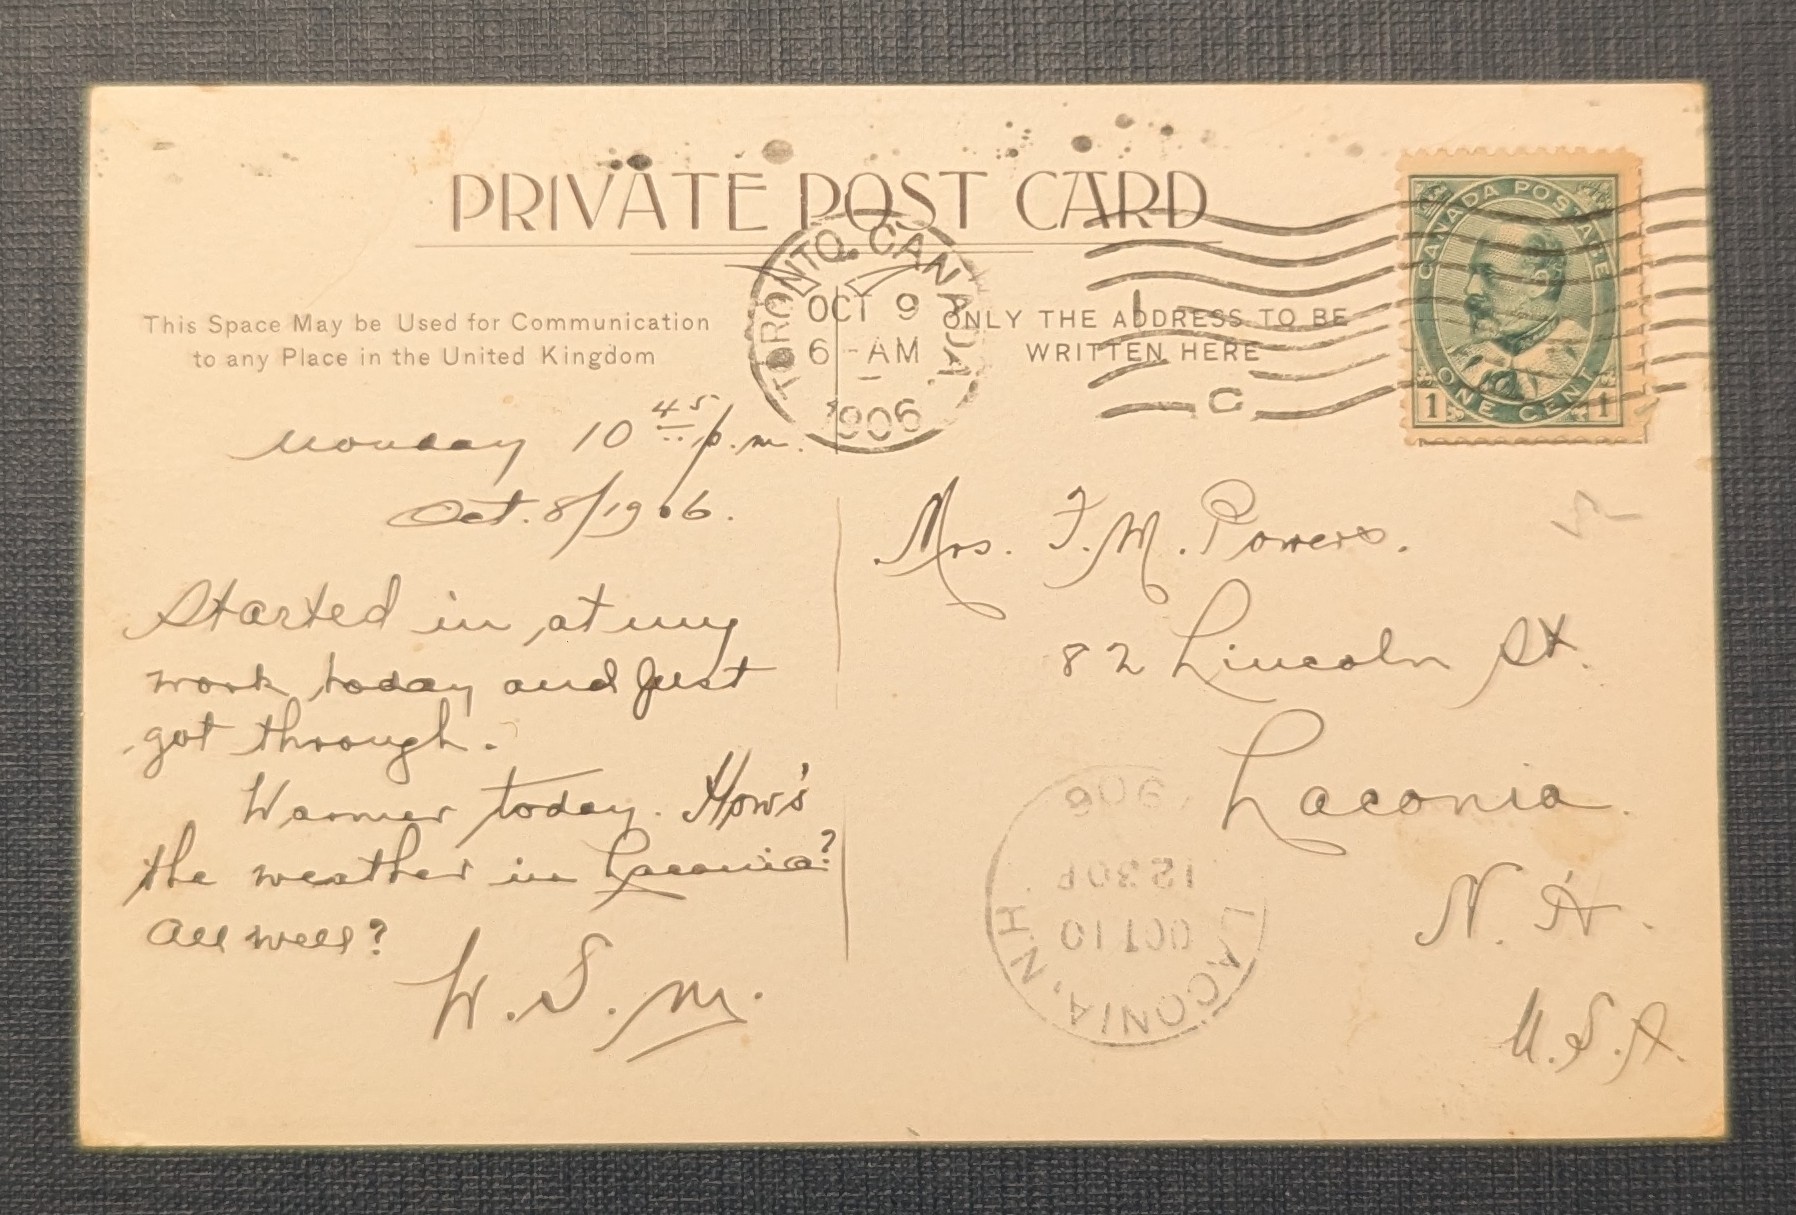 PRIVATE POST CARD
TORONTO. CANADA
OCT 9
6 - AM
1906
C
CANADA POSTAGE
ONE CENT
1 1
This Space May be Used for Communication
to any Place in the United Kingdom
ONLY THE ADDRESS TO BE
WRITTEN HERE
Monday 10 45 p.m.
Oct. 8/1906.
Started in at my
work today and just
got through.
Warmer today. How's
the weather in Laconia?
All well?
W. S. M.
Mrs. F. M. Powers.
82 Lincoln St.
Laconia.
N. H.
U. S. A.
LACONIA, N.H.
OCT 10
1230P
1906